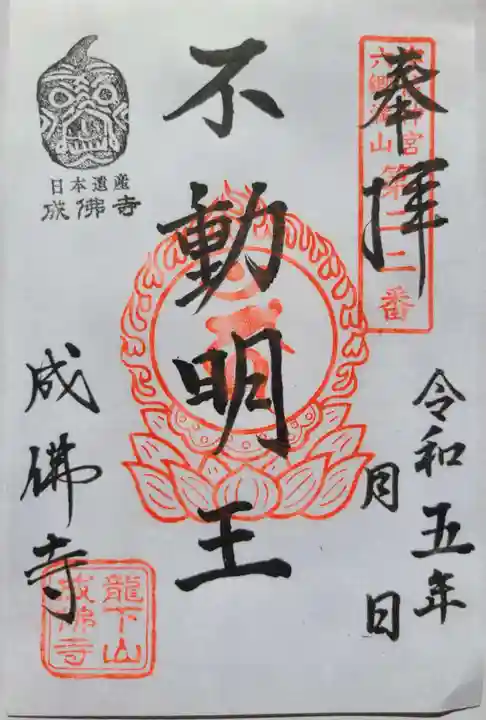 奉拝
宇佐神宮
六郷満山
第二二番
令和五年
月 日
不動明王
日本遺産
成佛寺
成佛寺
龍下山
成佛寺